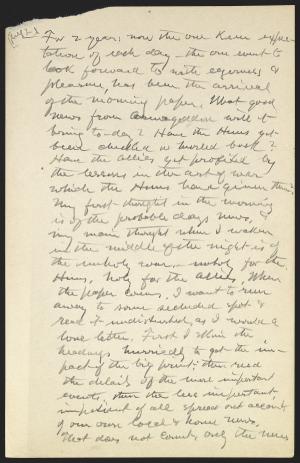 For 2 years now the one keen expec-
tation of each day – the one event to
look forward to with eagerness &
pleasure, has been the arrival
of the morning paper. What good
news from Armageddon will it
bring to-day? Have the Huns yet
been checked or hurled back?
Have the allies yet profited by
the lessons in the art of war
which the Huns have given them?
My first thought in the morning
is of the probable days news, &
my main thought when I waken
in the middle of the night is of
the unholy war – unholy for the
Huns, holy for the allies. When
the paper comes, I want to run
away to some secluded spot &
read it undisturbed, as I would a
love letter. First I skim the
headings hurriedly to get the im-
pact of the big print; then read
the details of the more important
events, then the less important,
impatient of all spread out accounts
of our own local & home news.
That does not count, only the news